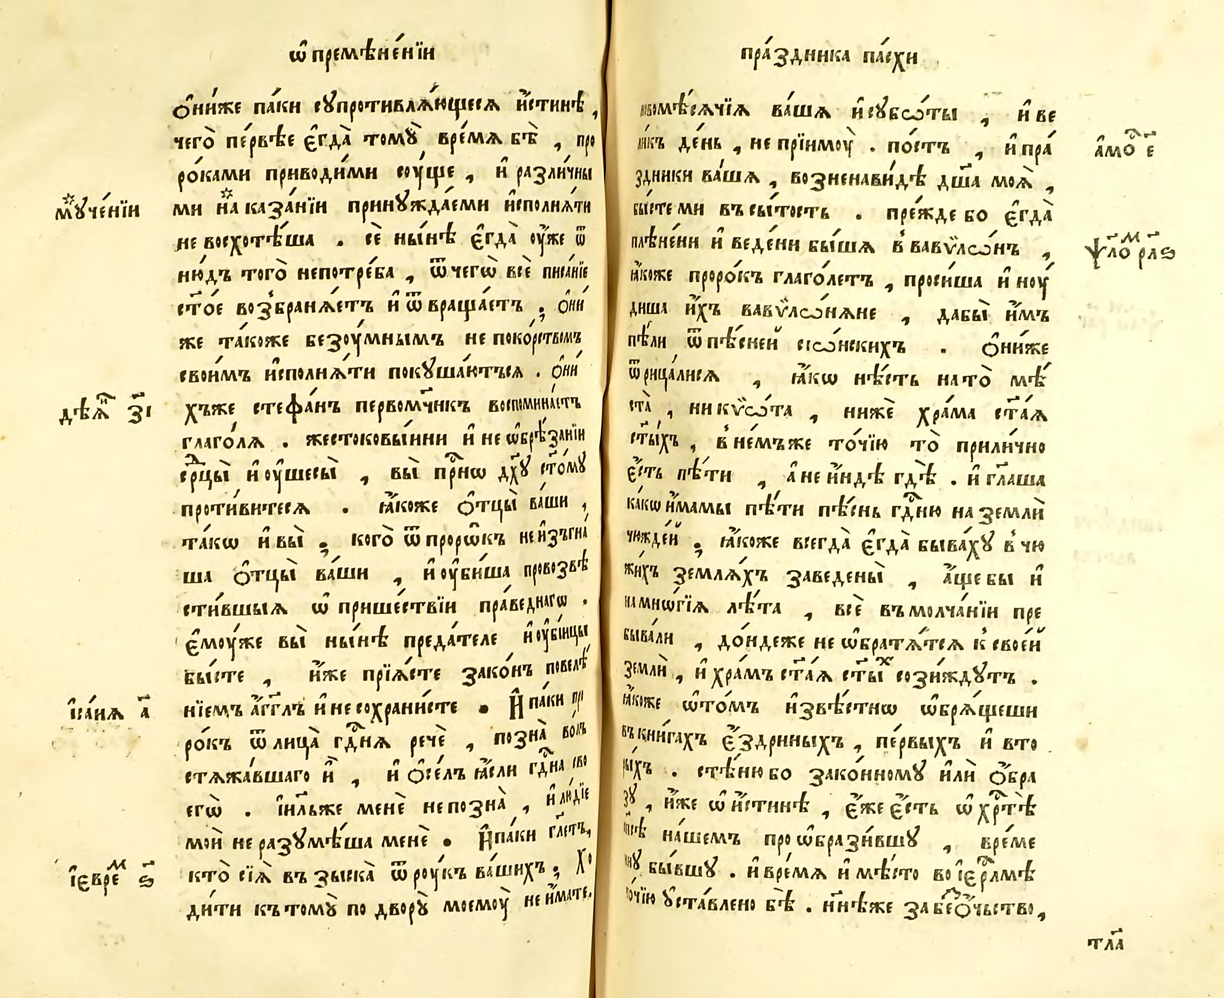 ѡ҆ премѣне́нїи
ѻ҆́ниже па́ки сꙋпротивлѧ́ющесѧ и҆́стинѣ ,
чего̀ пе́рвѣе є҆гда̀ томꙋ̀ вре́мѧ бѣ̀ , про
ро́ками приводи́ми сѹ́ще , и҆ разли́чны
мꙋче́нїи
ми на каза́нїи принꙋжда́еми и҆сполнѧ́ти
не восхотѣ́ша . сѐ ны́нѣ є҆гда̀ ѹ҆́же ѿ
ню́дъ того̀ непотре́ба , ѿчегѡ̀ всѐ писа́нїе
ст҃о́е возбранѧ́етъ и҆ ѿвраща́етъ ; ѻ҆ни́
же та́коже безѹ́мнымъ непоко́рствомъ
свои́мъ и҆сполнѧ́ти покꙋша́ютьсѧ . ѻ҆ни́
дѣѧ҃ з҃і
хъже стефа́нъ первомч҃нкъ воспомина́етъ
глаго́лѧ . жестоковы́йни и҆ не ѡ҆брѣ́занїи
ср҃цы̀ и҆ ѹ҆шесы̀ , вы̀ при҃нѡ дх҃ꙋ ст҃о́мꙋ
проти́витесѧ . ꙗ҆́коже ѻ҆тцы̀ ва́ши ,
та́кѡ и҆ вы̀ ; кого̀ ѿ прорѡ́къ не и҆зъгна́
ша ѻ҆тцы̀ ва́ши , и҆ ѹ҆би́ша провозвѣ
сти́вшыѧ ѡ҆ прише́ствїи пра́веднагѡ .
є҆мѹ́же вы̀ ны́нѣ преда́теле и҆ ѹ҆бі́йцы
бы́сте , и҆́же прїѧ́сте зако́нъ повелѣ́
ниемъ а҆́гг҃лъ и҆ не сохрани́сте . И҆ па́ки про
и҆са́иѧ а҃
ро́къ ѿ лица̀ гд҃нѧ речѐ , позна̀ во́лъ
стѧжа́вшаго и҆̀ , и҆ ѻ҆се́лъ ꙗ҆́сли гд҃на сво
егѡ̀ . і҆и҃льже менѐ непозна̀ , и҆ лю́дїе
мои̑ не разꙋмѣ́ша менѐ . И҆ па́ки гл҃етъ ,
і҆євре́м ѕ҃
кто̀ сїѧ̀ възыска̀ ѿ рѹ́къ ва́шихъ ; Хо
ди́ти къ томꙋ̀ по дворꙋ̀ моемѹ̀ не и҆́мате .
пра́здника па́схи
новомѣ́сѧчїѧ ва́шѧ и҆ сꙋбѡ́ты , и҆ ве
ли́къ де́нь , не прїимѹ̀ . по́стъ , и҆ пра́
а҆мо́с е҃
здники ва́шѧ , возненави́дѣ дш҃а моѧ̀ ,
бы́сте ми въ сы́тость . пре́жде бо є҆гда̀
плѣне́ни и҆ веде́ни бы́шѧ в̾ вавѷлѡ́нъ ,
ѱало́м рл҃ѕ
ꙗ҆́коже проро́къ глаго́летъ , проси́ша и҆ нѹ́
диша и҆́хъ вавѷлѡ́нѧне , дабы̀ и҆̀мъ
пѣ́ли ѿ пѣ́сней сиѡ́нскихъ . ѻ҆ни́же
ѿрица́лисѧ , ꙗ҆́кѡ нѣ́сть на то̀ мѣ́
ста̀ , ни кѷѡ́та , нижѐ хра́ма ст҃а́ѧ
ст҃ы́хъ , в̾ не́мъже то́чїю то̀ прили́чно
є҆́сть пѣ́ти , а҆ не и҆́ндѣ гдѣ̀ . и҆ гл҃аша
ка́кѡ и҆́мамы пѣ́ти пѣ́снь гд҃ню на землѝ
чюжде́й ; ꙗ҆́коже всегда̀ є҆гда̀ быва́хꙋ в̾ чю
жи́хъ землѧ́хъ заведены̀ , а҆́ще бы и҆
на мнѡ́гїѧ лѣ́та , всѐ въ молча́нїи пре
быва́ли , до́ндеже не ѡ҆братѧ́тсѧ к̾ свое́й
землѝ , и҆ хра́мъ ст҃а́ѧ ст҃ы́х сози́ждꙋтъ .
ꙗ҆́коже ѡ҆ то́мъ и҆звѣ́стнѡ ѡ҆брѧ́щеши
въ кни́гахъ є҆́здриныхъ , пе́рвыхъ и҆ вто
ры́хъ . стѣ́ню бо зако́нномꙋ и҆лѝ ѻ҆́бра
зꙋ̀ , и҆́же ѡ҆ и҆́стинѣ , є҆́же є҆́сть ѡ҆ хр҃тѣ̀
сп҃сѣ на́шемъ проѡбрази́вшꙋ , вре́ме
нꙋ̀ бы́вшꙋ . и҆ вре́мѧ и҆ мѣ́сто во і҆ер҃ли́мѣ
то́чїю ᲂу҆ста́влено бѣ̀ . нн҃ѣже за бе҃зѻ҆́чьство ,
тл҃а